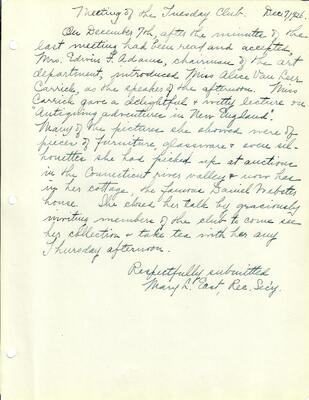 Meeting of the Tuesday Club. Dec 7, 1926.
On December 7th, after the minutes of the
last meeting had been read and accepted,
Mrs. Edwin F. Adams, chairman of the art
department, introduced Miss Alice Van Leer
Carrick, as the speaker of the afternoon. Miss
Carrick gave a delightful & witty lecture on
"Antiquing adventures in New England".
Many of the pictures she showed were of
pieces of furniture, glassware & some sil-
houettes she had picked up at auctions
in the Connecticut river valley & now has
in her cottage, the famous Daniel Webster
house. She closed her talk by graciously
inviting members of the club to come see
her collection & take tea with her any
Thursday afternoon.
Respectfully submitted
Mary L. East, Rec. Sec'y.